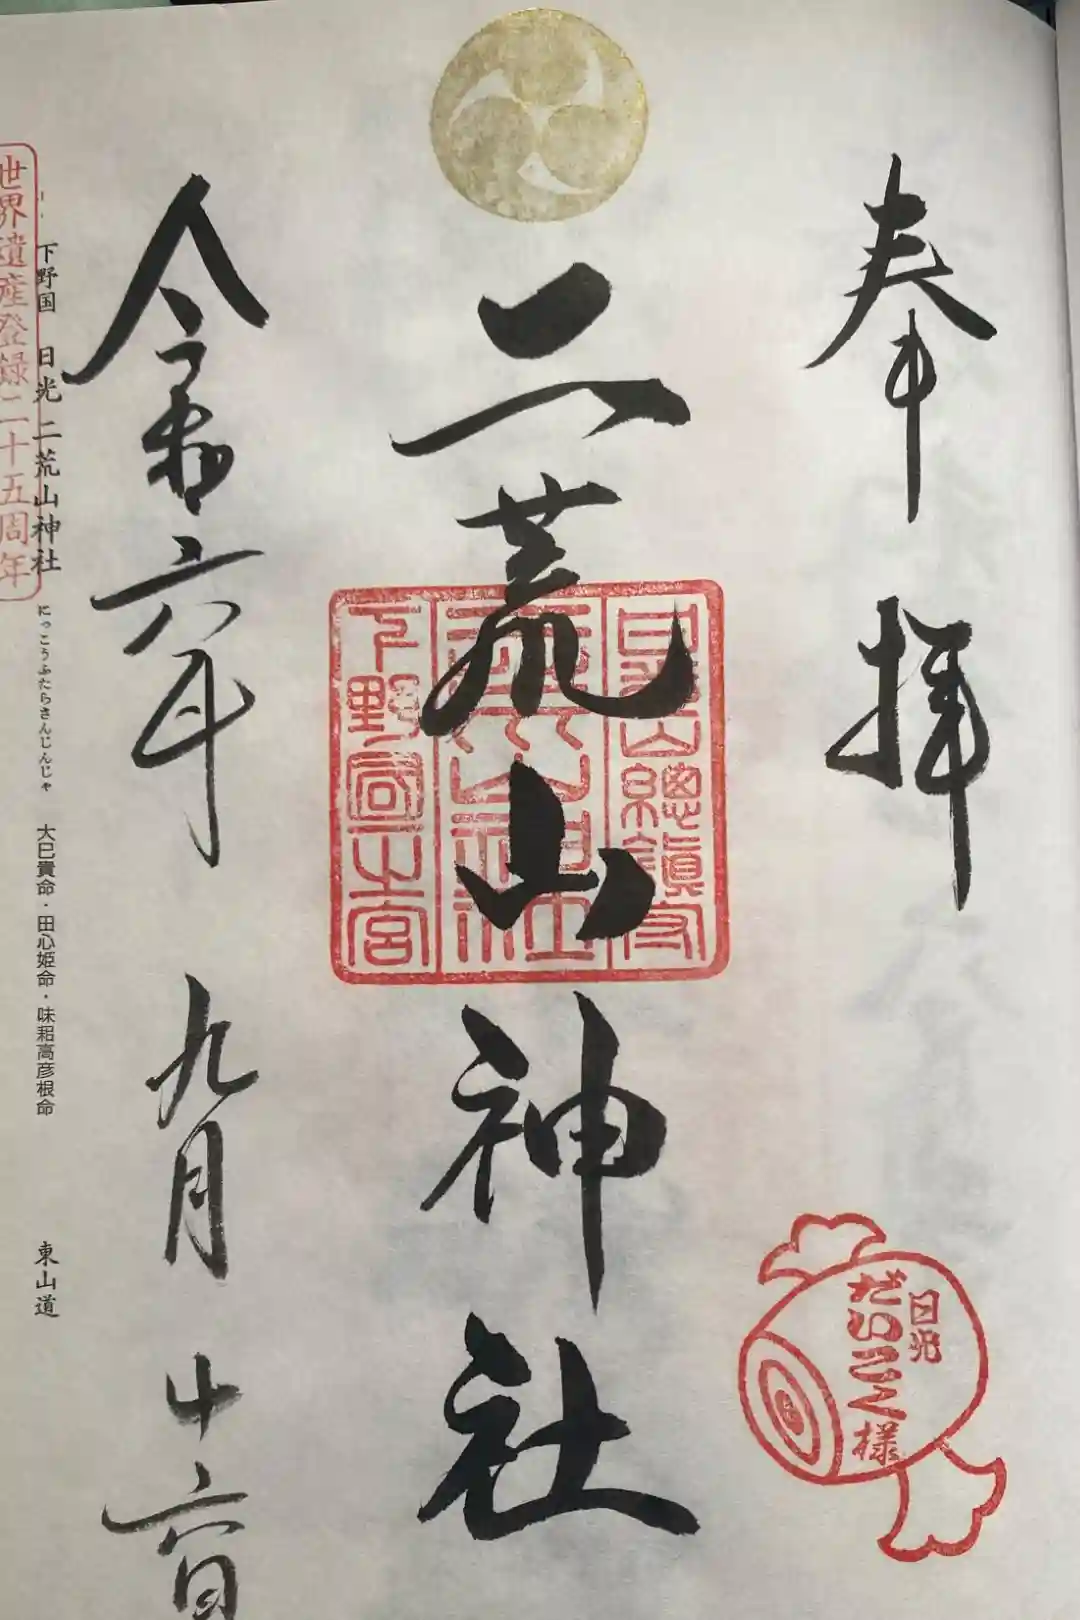 奉拝
日光
だいこく様
二荒山神社
日光山總鎮守
二荒山神社
下野国一之宮
令和六年九月十六日
下野国 日光 二荒山神社 にっこうふたらさんじんじゃ 大巳貴命・田心姫命・味耜高彦根命 東山道
世界遺産登録二十五周年